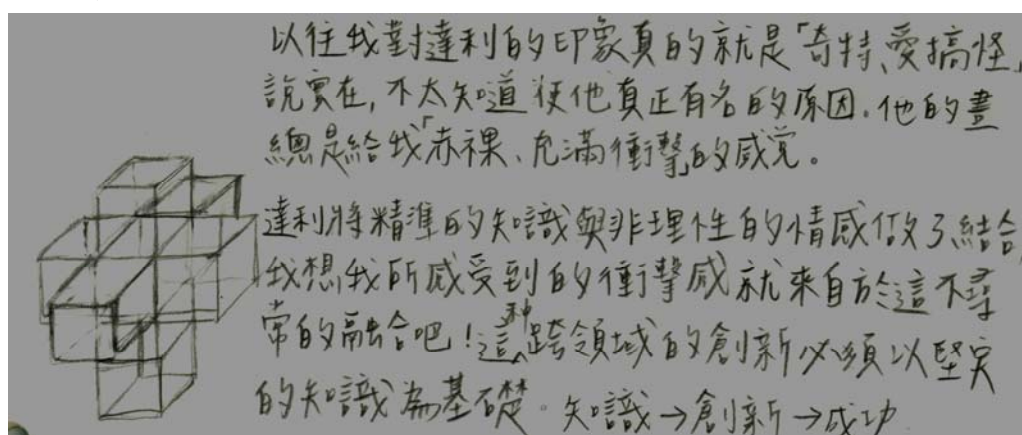 以往我對達利的印象真的就是「奇特、愛搞怪」
說實在,不太知道使他真正有名的原因.他的畫
總是給我「赤裸、充滿衝擊」的感覚。
達利將精準的知識與非理性的情感做了結合,
我想我所感受到的衝擊感就來自於這不尋
常的融合吧!這種跨領域的創新必須以堅実
的知識為基礎。知識→創新→成功